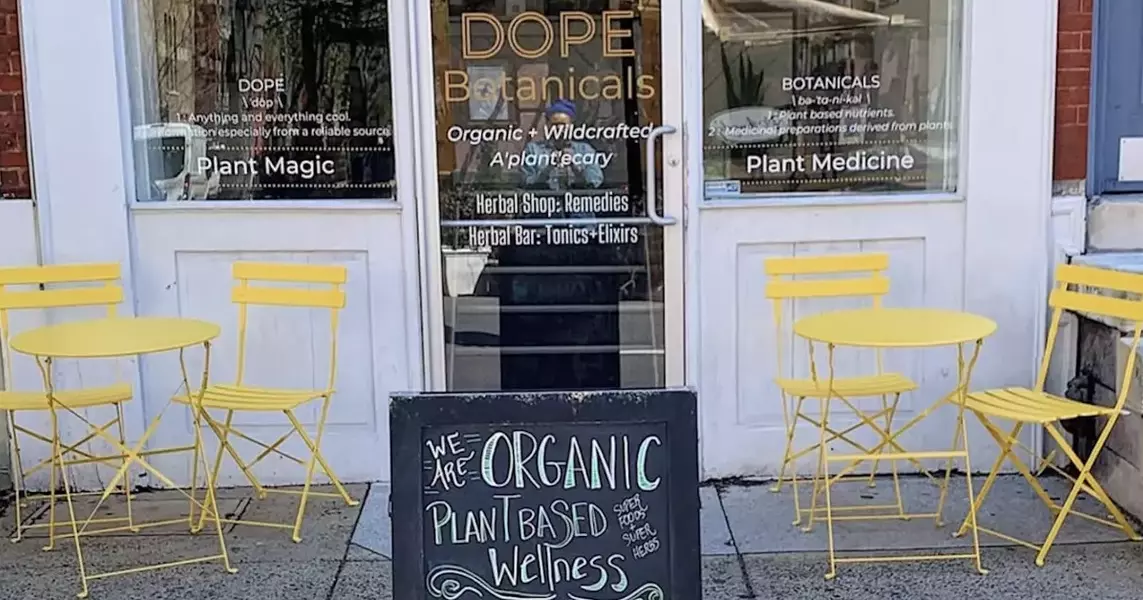 DOPE
Botanicals
Organic + Wildcrafted
A'plant'ecary
Herbal Shop: Remedies
Herbal Bar: Tonics+Elixirs
DOPE
\ˈdōp\
1: Anything and everything cool.
information especially from a reliable source.
Plant Magic
BOTANICALS
\bə-ˈta-ni-kəl\
1: Plant based nutrients.
2: Medicinal preparations derived from plants
Plant Medicine
WE ARE ORGANIC
PLANT BASED
Wellness
SUPER
FOODS
+
SUPER
HERBS